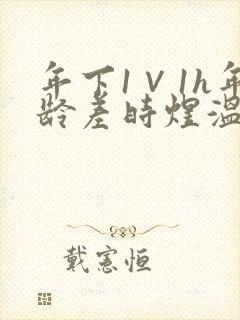 年下1V1h年
龄差时煜温
戴宪恒